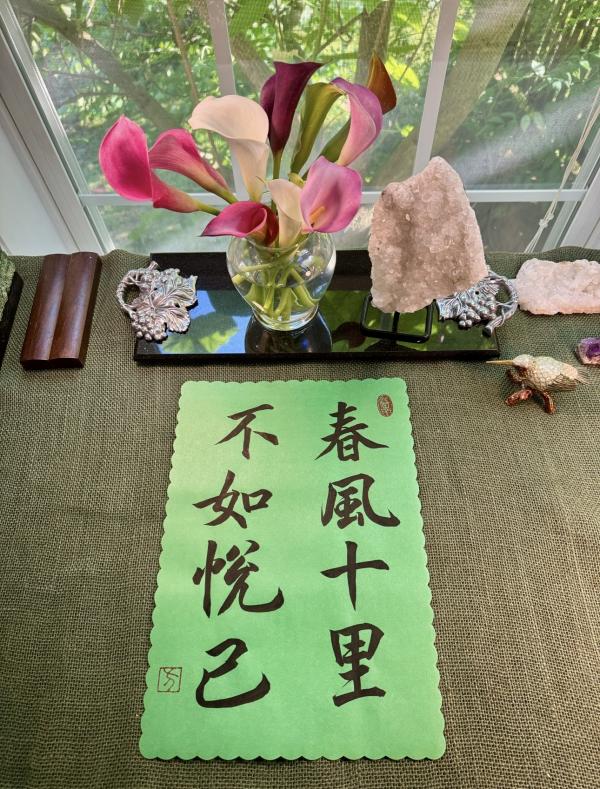 春風十里
不如悅己